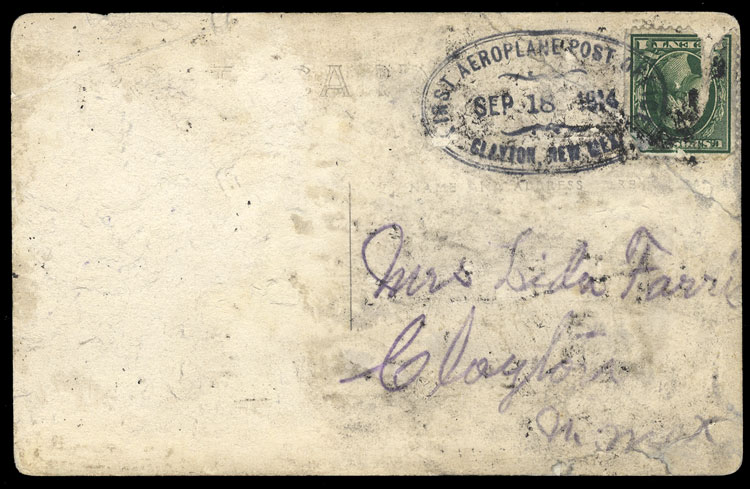 FIRST AEROPLANE POST
SEP 18 1914
CLAYTON, NEW MEX
NAME AND ADDRESS HERE
Mrs Lida Farri
Clayton
n. mex